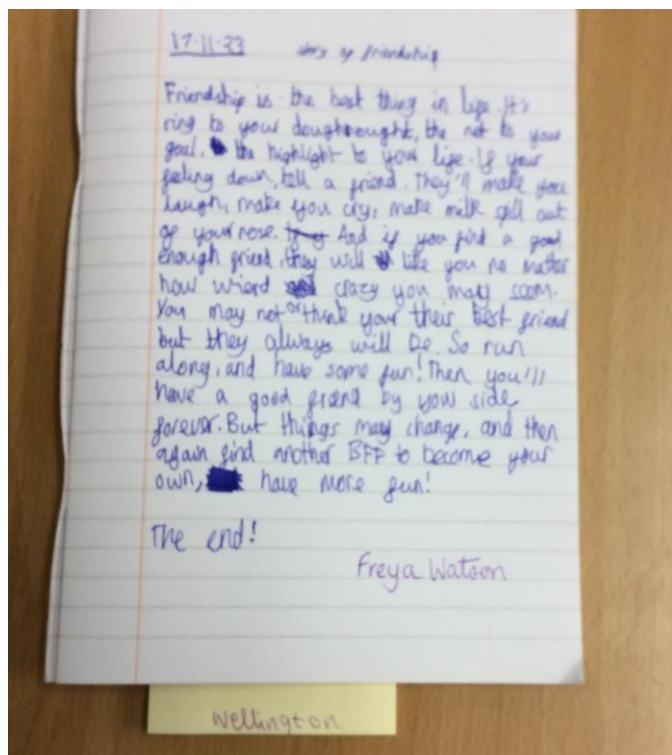 17-11-23 story of friendship
Friendship is the best thing in life. It's
ring to your doughnought, the net to your
goal, the highlight to your life. If your
feeling down, tell a friend. They'll make you
laugh, make you cry, make milk spill out
of your nose. And if you find a good
enough friend, they will like you no matter
how wierd or crazy you may seem.
You may not think your their best friend
but they always will be. So run
along, and have some fun! Then you'll
have a good friend by your side
forever. But things may change, and then
again find another BFF to become your
own, have more fun!
The end!
Freya Watson
Wellington